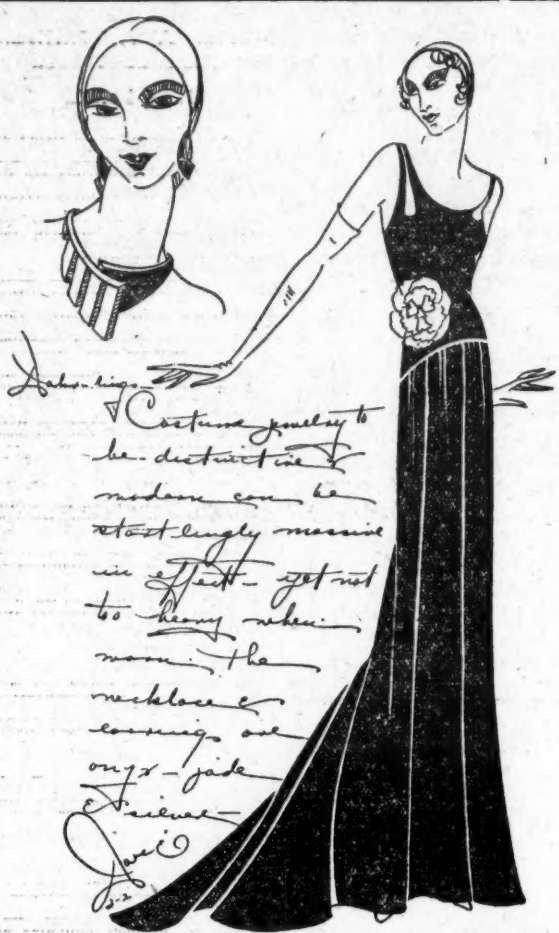 Dahr-lings—
Costume jewelry to
be distinctive &
modern can be
startlingly massive
in effect — yet not
too heavy when
worn. The
necklace &
earrings are
onyx — jade
& silver —
2-2